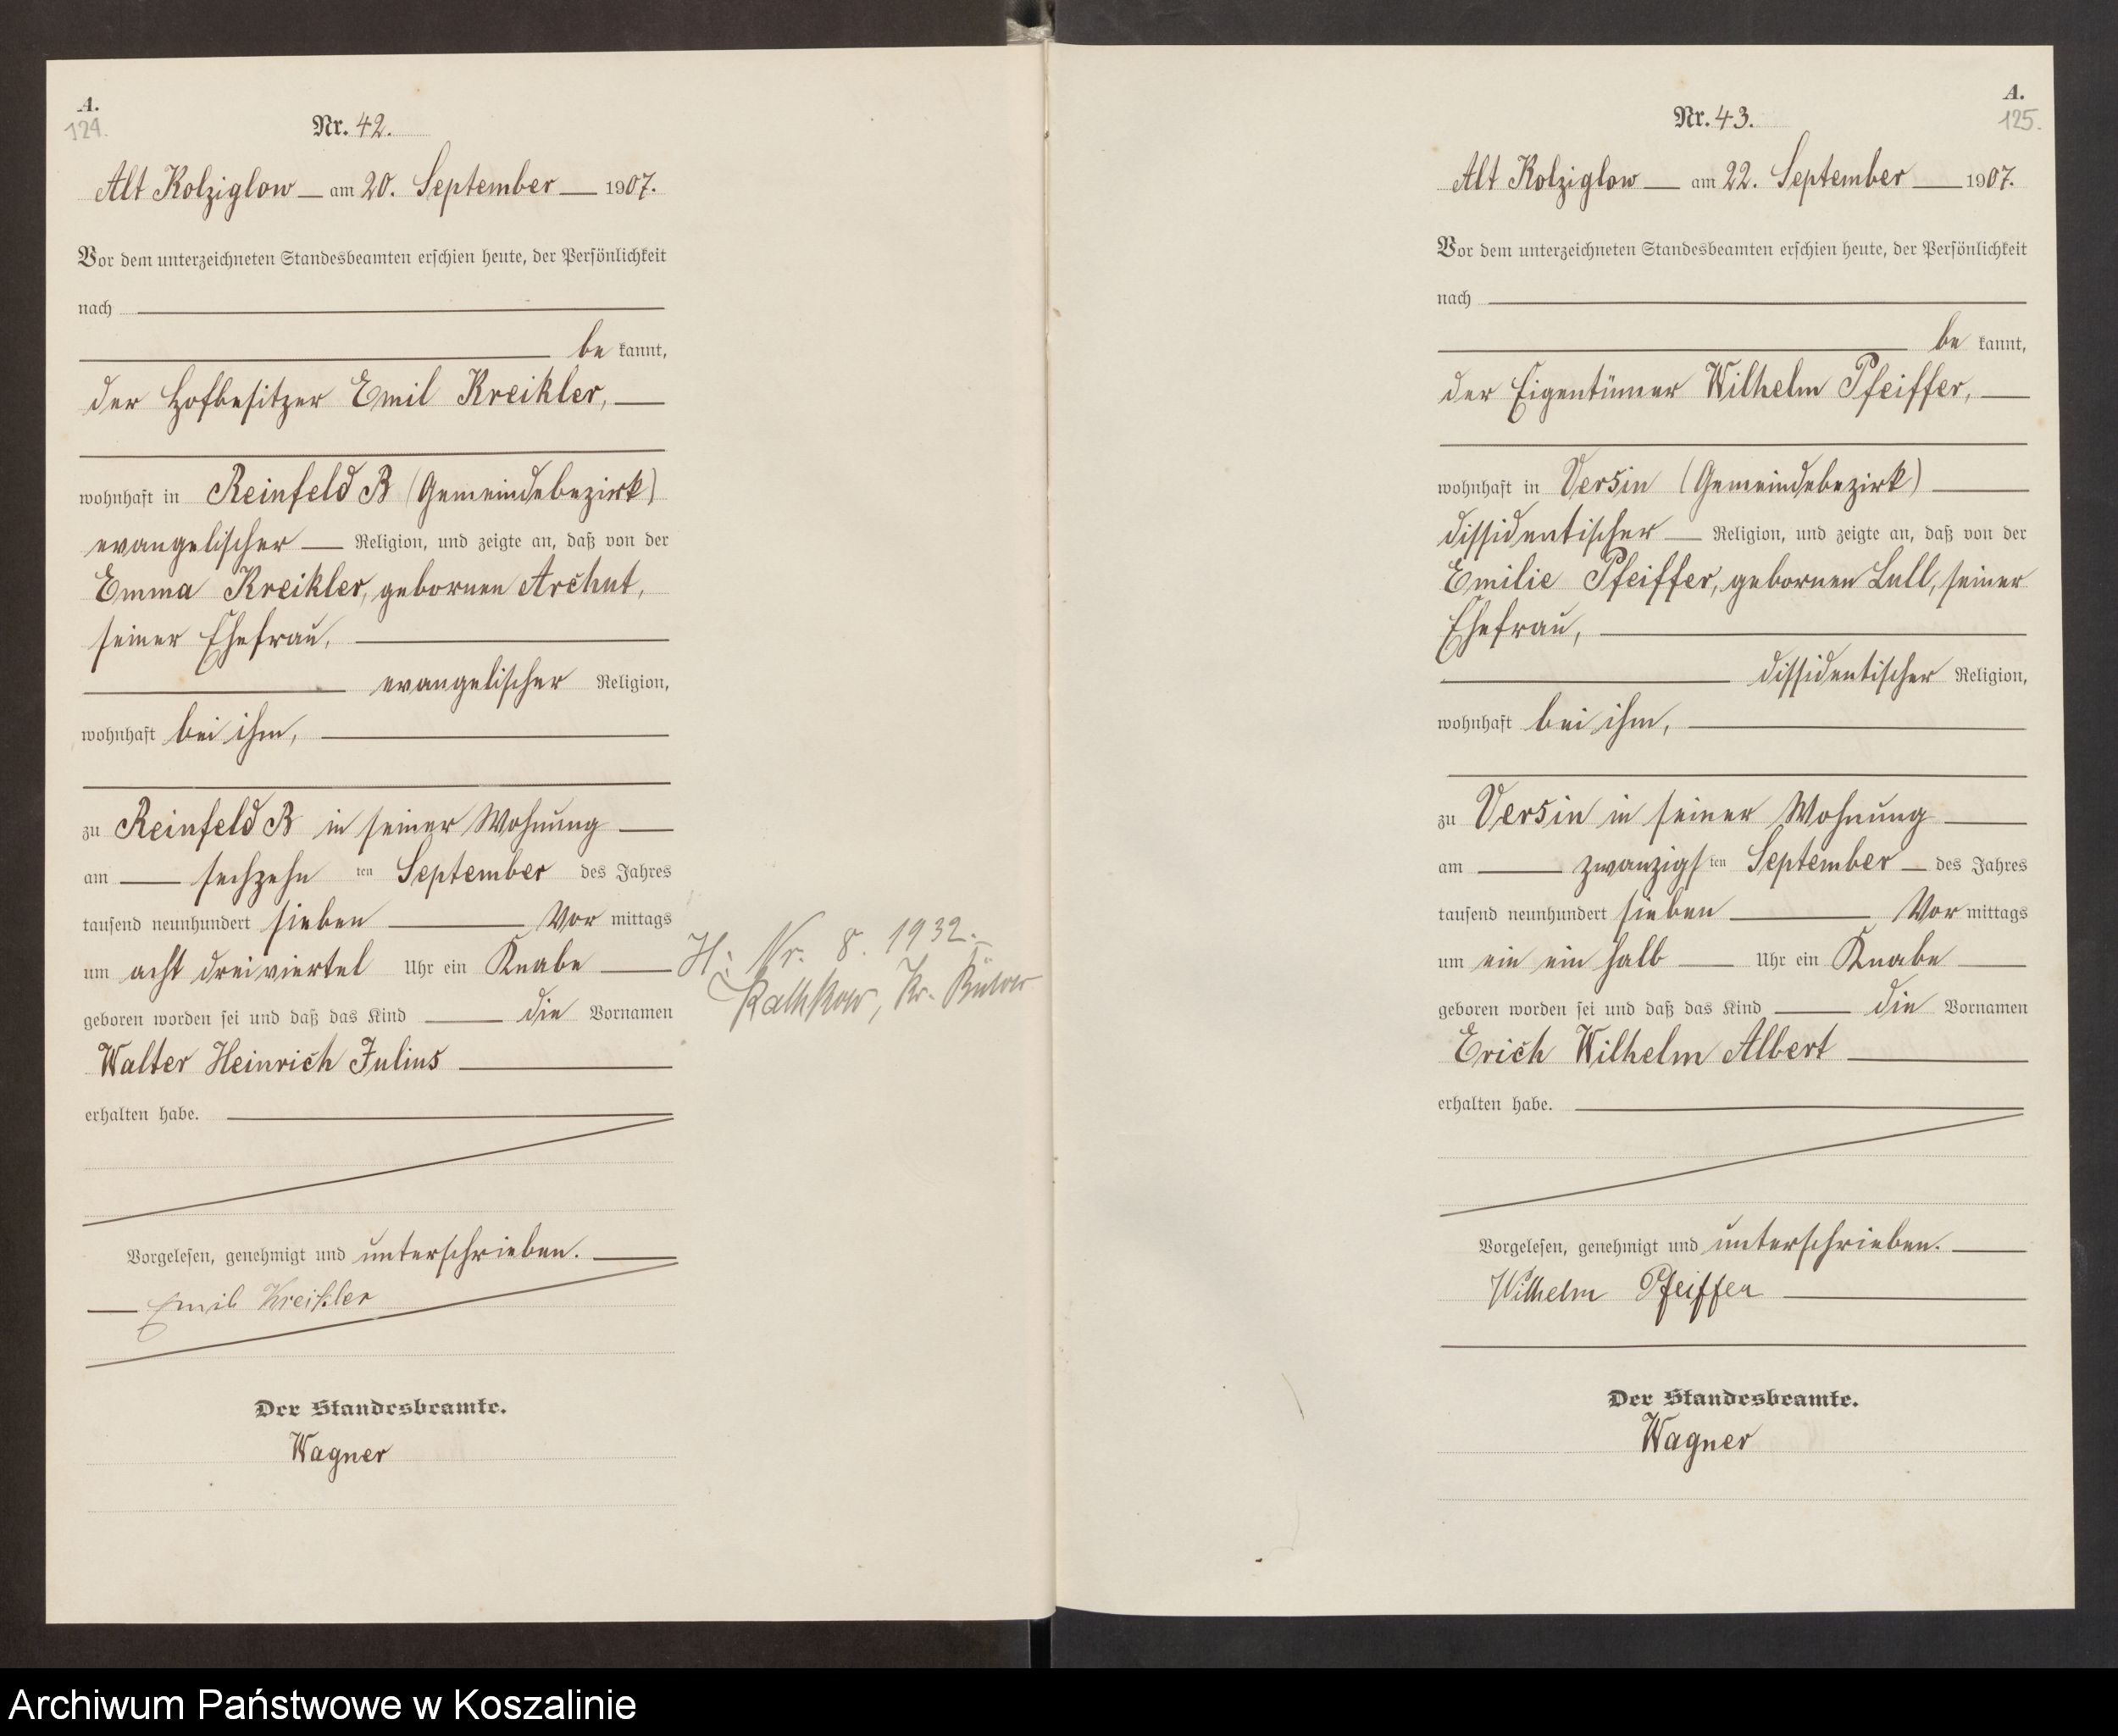 A.
124.
Nr. 42.
Alt Kolziglow am 20. September 1907.
Vor dem unterzeichneten Standesbeamten erschien heute, der Persönlichkeit
nach
be kannt,
der Hofbesitzer Emil Kreikler,
wohnhaft in Reinfeld B (Gemeindebezirk)
evangelischer Religion, und zeigte an, daß von der
Emma Kreikler, gebornen Archut,
seiner Ehefrau,
evangelischer Religion,
wohnhaft bei ihm,
zu Reinfeld B in seiner Wohnung
am sechzehn ten September des Jahres
tausend neunhundert sieben Vor mittags
um acht dreiviertel Uhr ein Knabe
geboren worden sei und daß das Kind die Vornamen
Walter Heinrich Julius
erhalten habe.
Vorgelesen, genehmigt und unterschrieben.
Emil Kreikler
Der Standesbeamte.
Wagner
H: Nr. 8. 1932.
Rathkow, Kr. Bütow
A.
125.
Nr. 43.
Alt Kolziglow am 22. September 1907.
Vor dem unterzeichneten Standesbeamten erschien heute, der Persönlichkeit
nach
be kannt,
der Eigentümer Wilhelm Pfeiffer,
wohnhaft in Versin (Gemeindebezirk)
dissidentischer Religion, und zeigte an, daß von der
Emilie Pfeiffer, gebornen Lull, seiner
Ehefrau,
dissidentischer Religion,
wohnhaft bei ihm,
zu Versin in seiner Wohnung
am zwanzigs ten September des Jahres
tausend neunhundert sieben Vor mittags
um ein ein halb Uhr ein Knabe
geboren worden sei und daß das Kind die Vornamen
Erich Wilhelm Albert
erhalten habe.
Vorgelesen, genehmigt und unterschrieben.
Wilhelm Pfeiffer
Der Standesbeamte.
Wagner
Archiwum Państwowe w Koszalinie